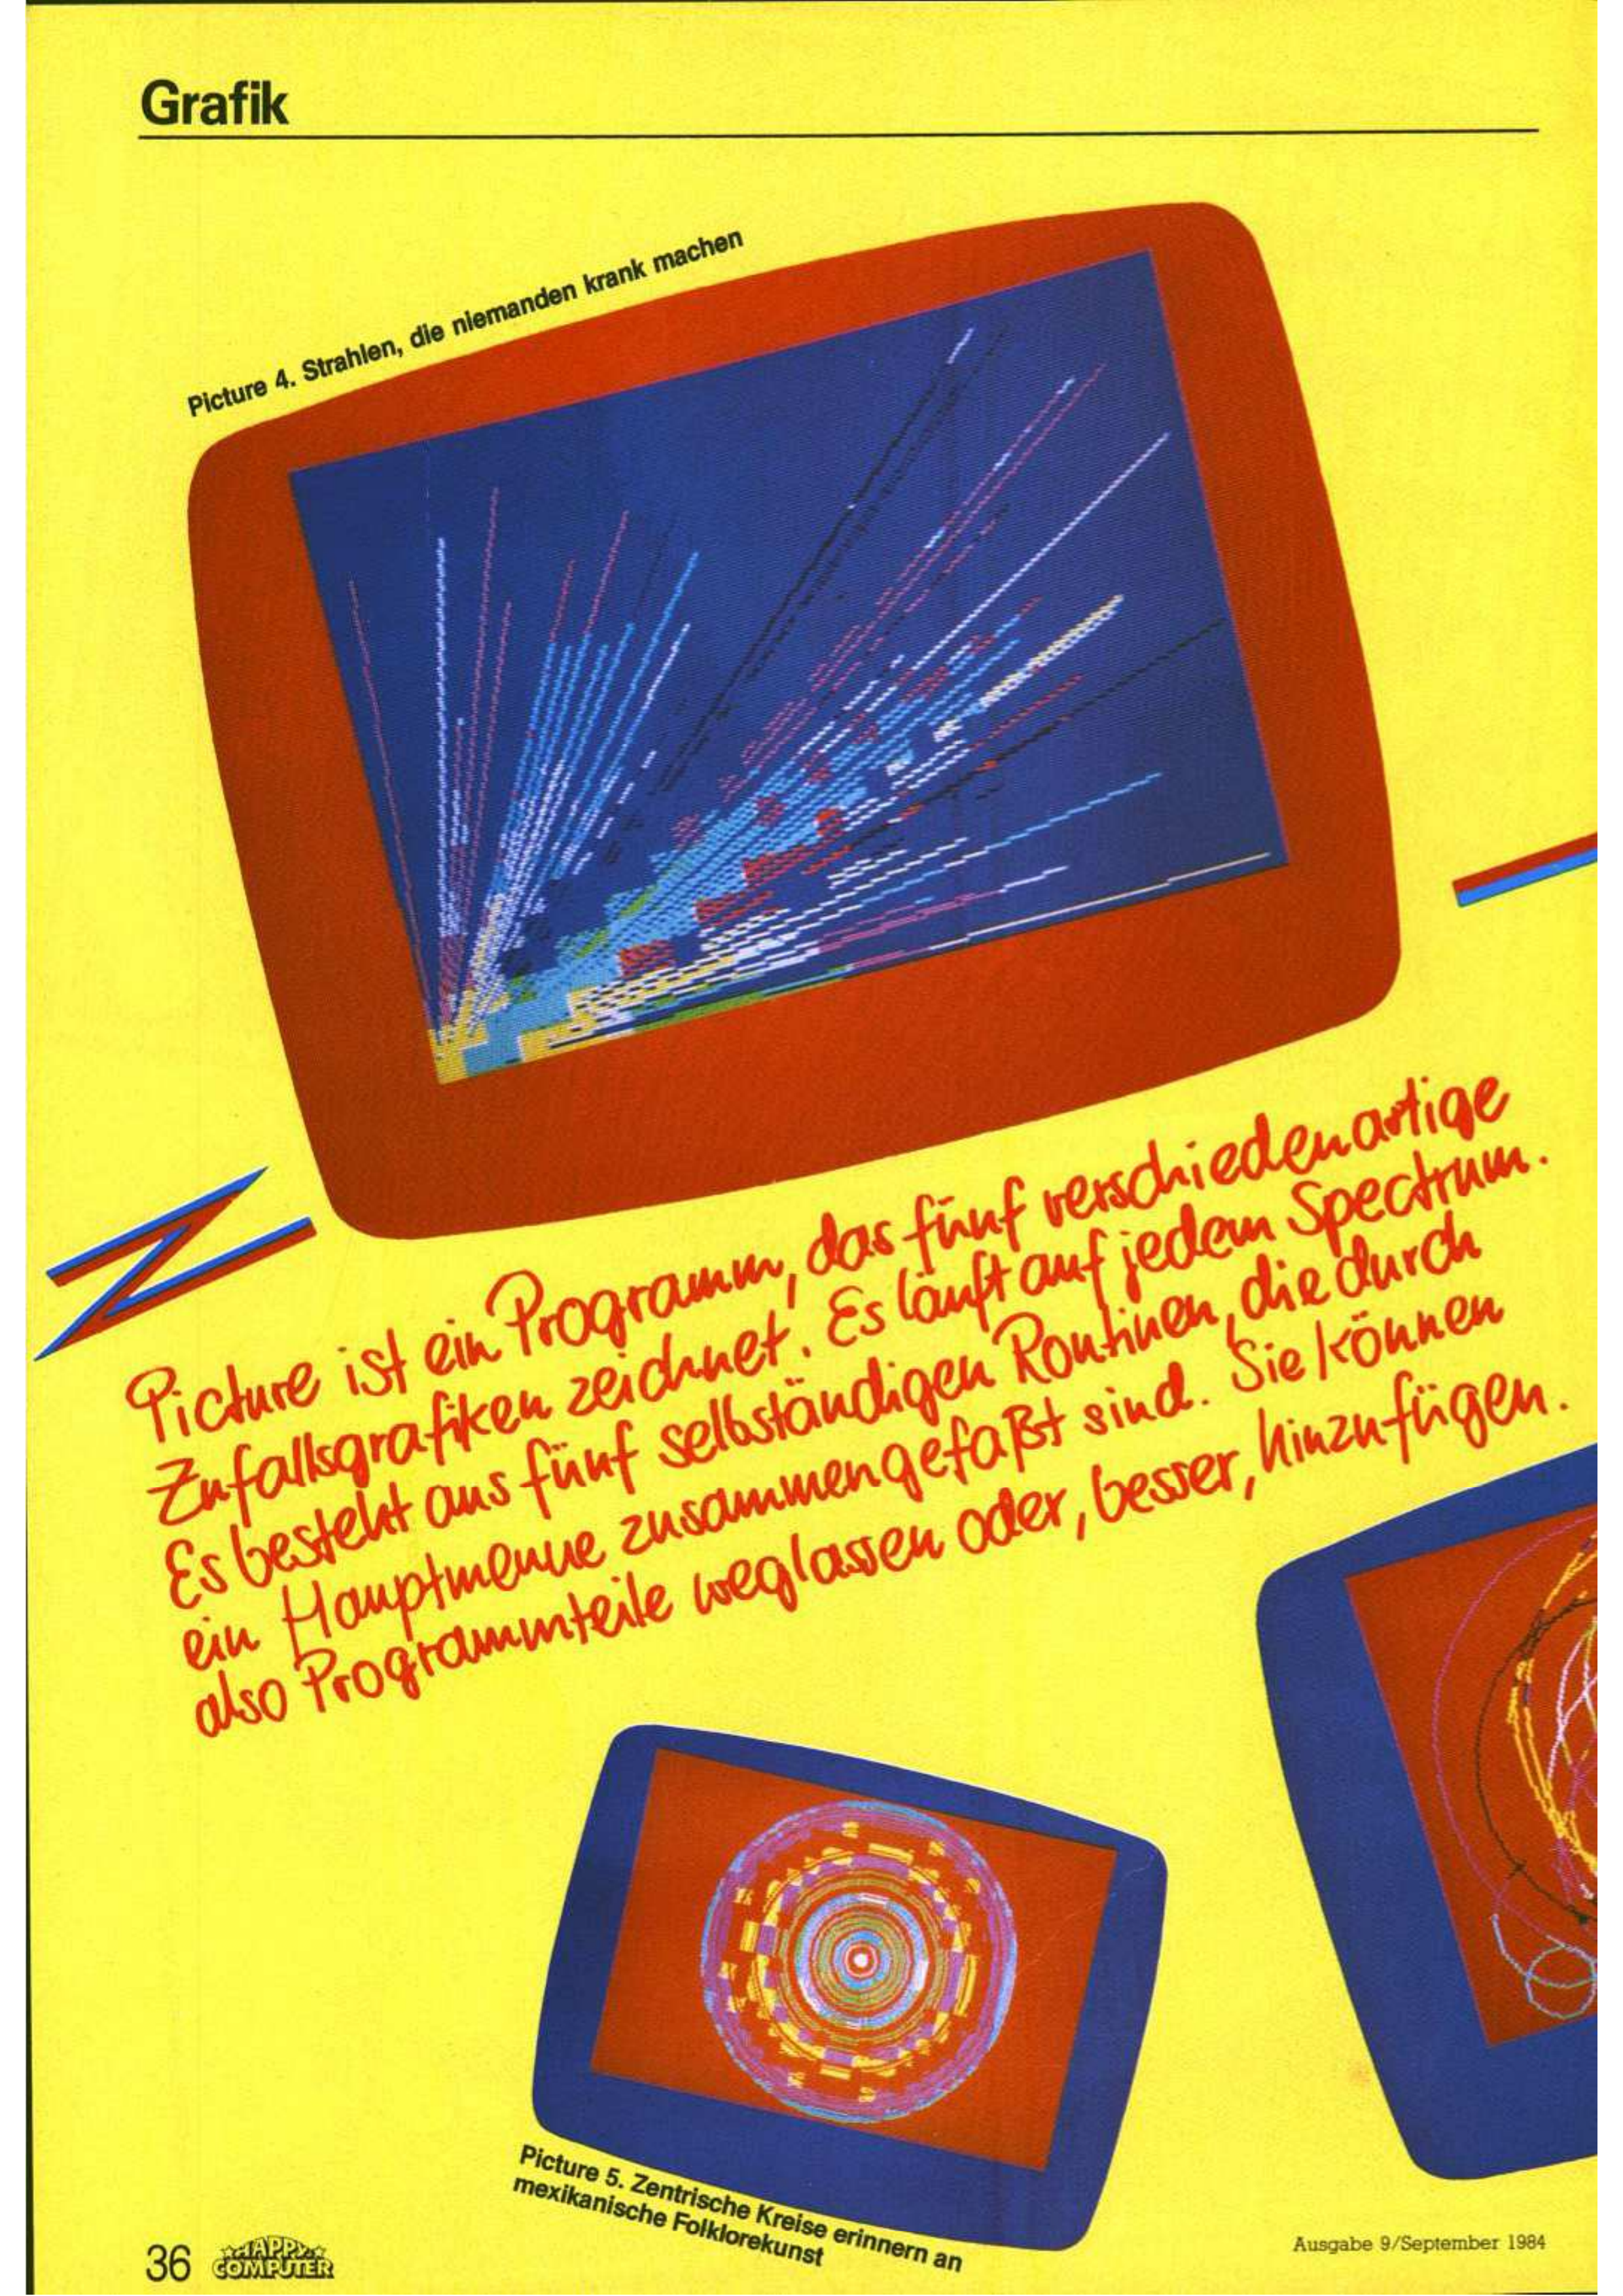 Grafik
Picture 4. Strahlen, die niemanden krank machen
Picture ist ein Programm, das fünf verschiedenartige
Zufallsgrafiken zeichnet. Es läuft auf jedem Spectrum.
Es besteht aus fünf selbständigen Routinen, die durch
ein Hauptmenue zusammengefaßt sind. Sie können
also Programmteile weglassen oder, besser, hinzufügen.
Picture 5. Zentrische Kreise erinnern an
mexikanische Folklorekunst
36 HAPPY
COMPUTER
Ausgabe 9/September 1984